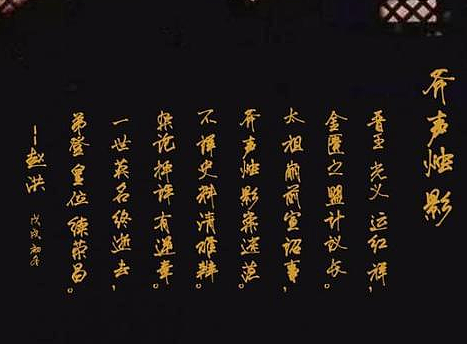 斧声烛影
晋王光义运红祥，
金匮之盟计议长。
太祖崩前宣诏事，
斧声烛影案迷茫。
不详史料清难辨。
论 有 章。
一世英名终逝去，
弟登皇位续荣昌。
—赵洪 戊戌初冬